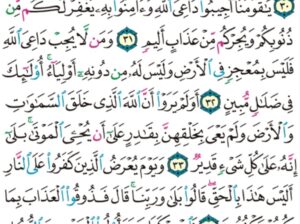 ۝٣٠ يَٰقَوْمَنَآ أَجِيبُوا۟ دَاعِىَ ٱللَّهِ وَءَامِنُوا۟ بِهِۦ يَغْفِرْ لَكُم مِّن
ذُنُوبِكُمْ وَيُجِرْكُم مِّنْ عَذَابٍ أَلِيمٍ ۝٣١ وَمَن لَّا يُجِبْ دَاعِىَ ٱللَّهِ
فَلَيْسَ بِمُعْجِزٍ فِى ٱلْأَرْضِ وَلَيْسَ لَهُۥ مِن دُونِهِۦٓ أَوْلِيَآءُ ۚ أُو۟لَٰٓئِكَ
فِى ضَلَٰلٍ مُّبِينٍ ۝٣٢ أَوَلَمْ يَرَوْا۟ أَنَّ ٱللَّهَ ٱلَّذِى خَلَقَ ٱلسَّمَٰوَٰتِ
وَٱلْأَرْضَ وَلَمْ يَعْىَ بِخَلْقِهِنَّ بِقَٰدِرٍ عَلَىٰٓ أَن يُحْۦِىَ ٱلْمَوْتَىٰ ۚ بَلَىٰٓ
إِنَّهُۥ عَلَىٰ كُلِّ شَىْءٍ قَدِيرٌ ۝٣٣ وَيَوْمَ يُعْرَضُ ٱلَّذِينَ كَفَرُوا۟ عَلَى ٱلنَّارِ
أَلَيْسَ هَٰذَا بِٱلْحَقِّ ۖ قَالُوا۟ بَلَىٰ وَرَبِّنَا ۚ قَالَ فَذُوقُوا۟ ٱلْعَذَابَ بِمَا